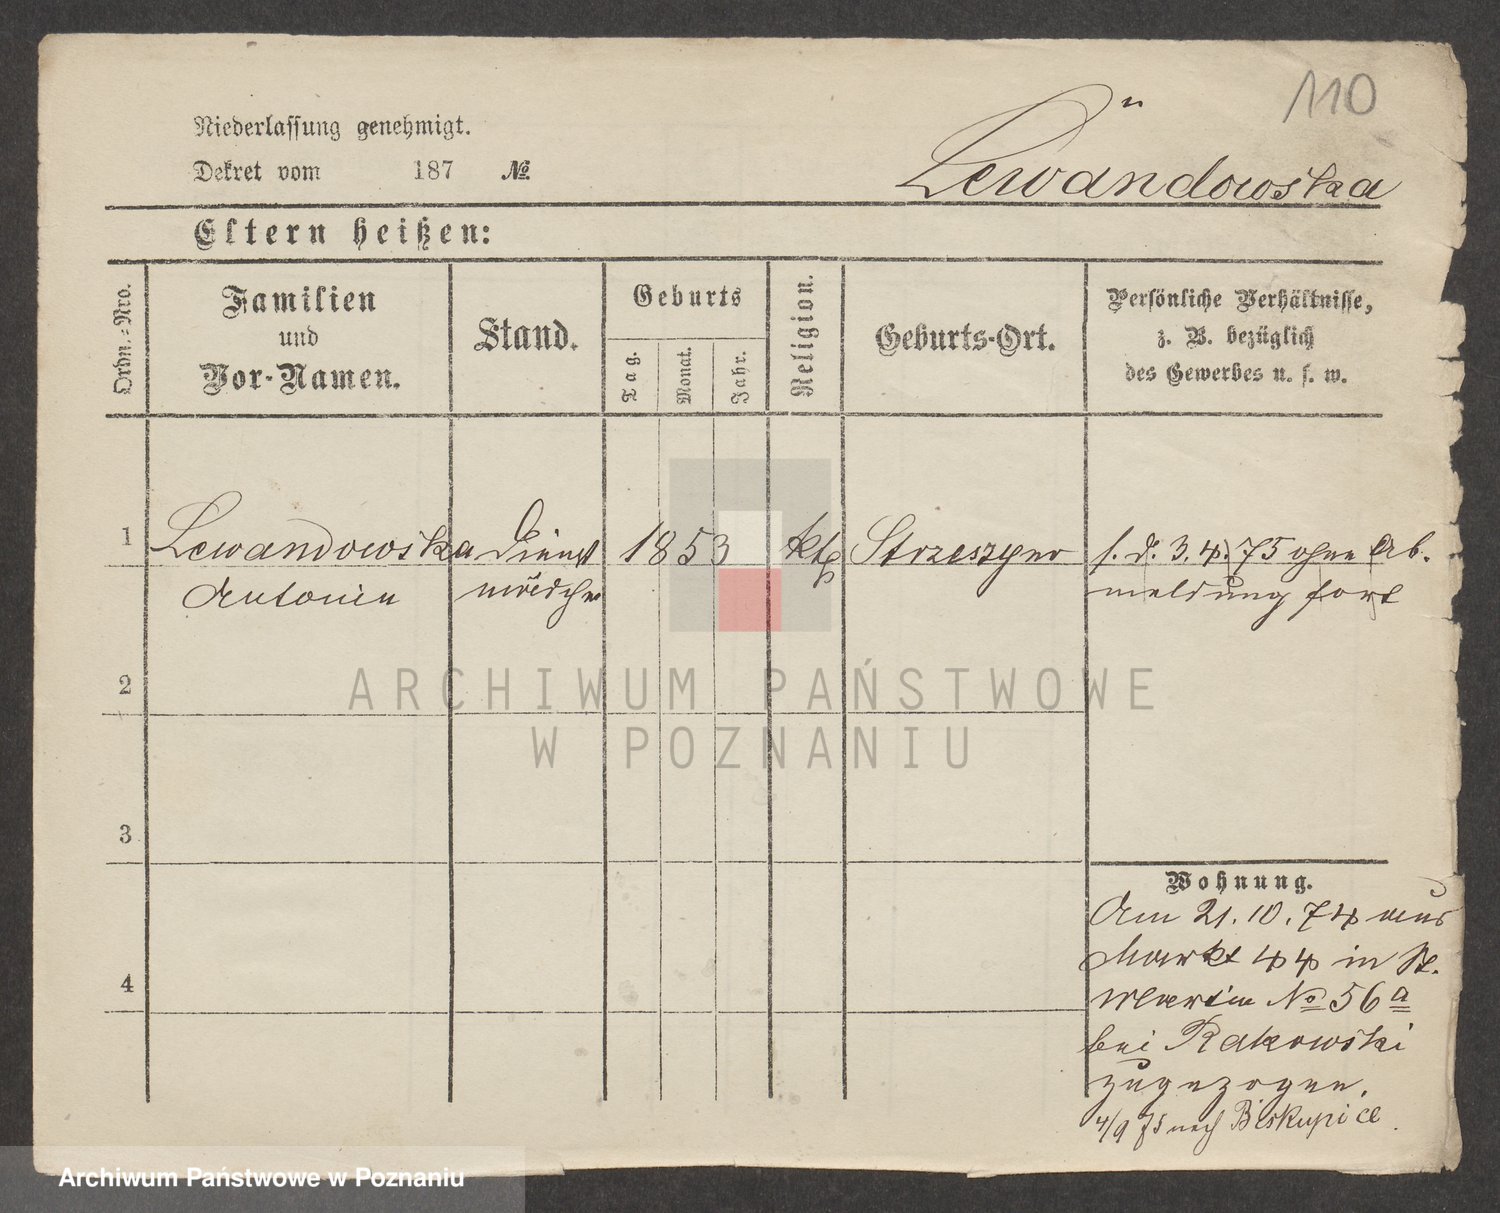 110
Niederlassung genehmigt.
Dekret vom 187 №
Lewandowska
Eltern heißen:
Ordn.-Nro.
Familien
und
Vor-Namen.
Stand.
Geburts
Tag.
Monat.
Jahr.
Religion.
Geburts-Ort.
Persönliche Verhältnisse,
z. B. bezüglich
des Gewerbes u. s. w.
1 Lewandowska Dienst 1853 kth Strzeszyno s. d. 3.4.75 ohne Ab-
Antonin mädchen meldung fort
2
3
4
Wohnung.
Am 21.10.74 aus
Markt 44 in St.
Martin No 56 a
bei Rakowski
zugezogen.
4/9 75 nach Biskupice.
ARCHIWUM PAŃSTWOWE
W POZNANIU
Archiwum Państwowe w Poznaniu